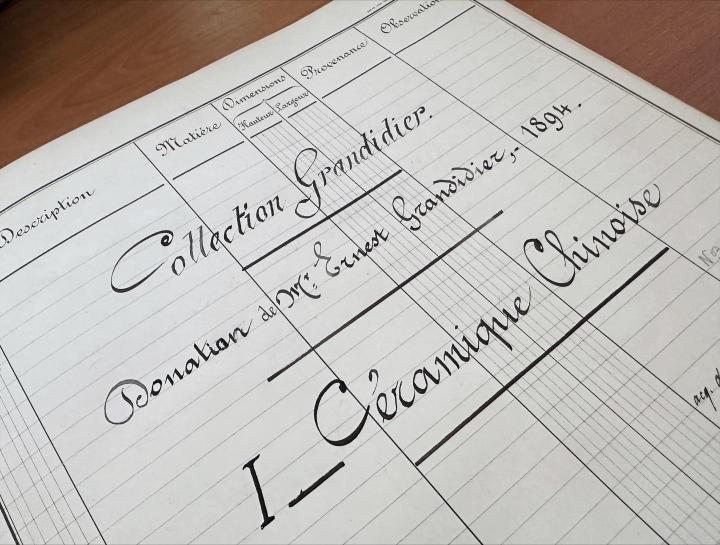 Description Matière Dimensions Provenance Observation
Hauteur Largeur
Collection Grandidier.
Donation de Mr. Ernest Grandidier, - 1894.
I_ Céramique Chinoise
acq. d